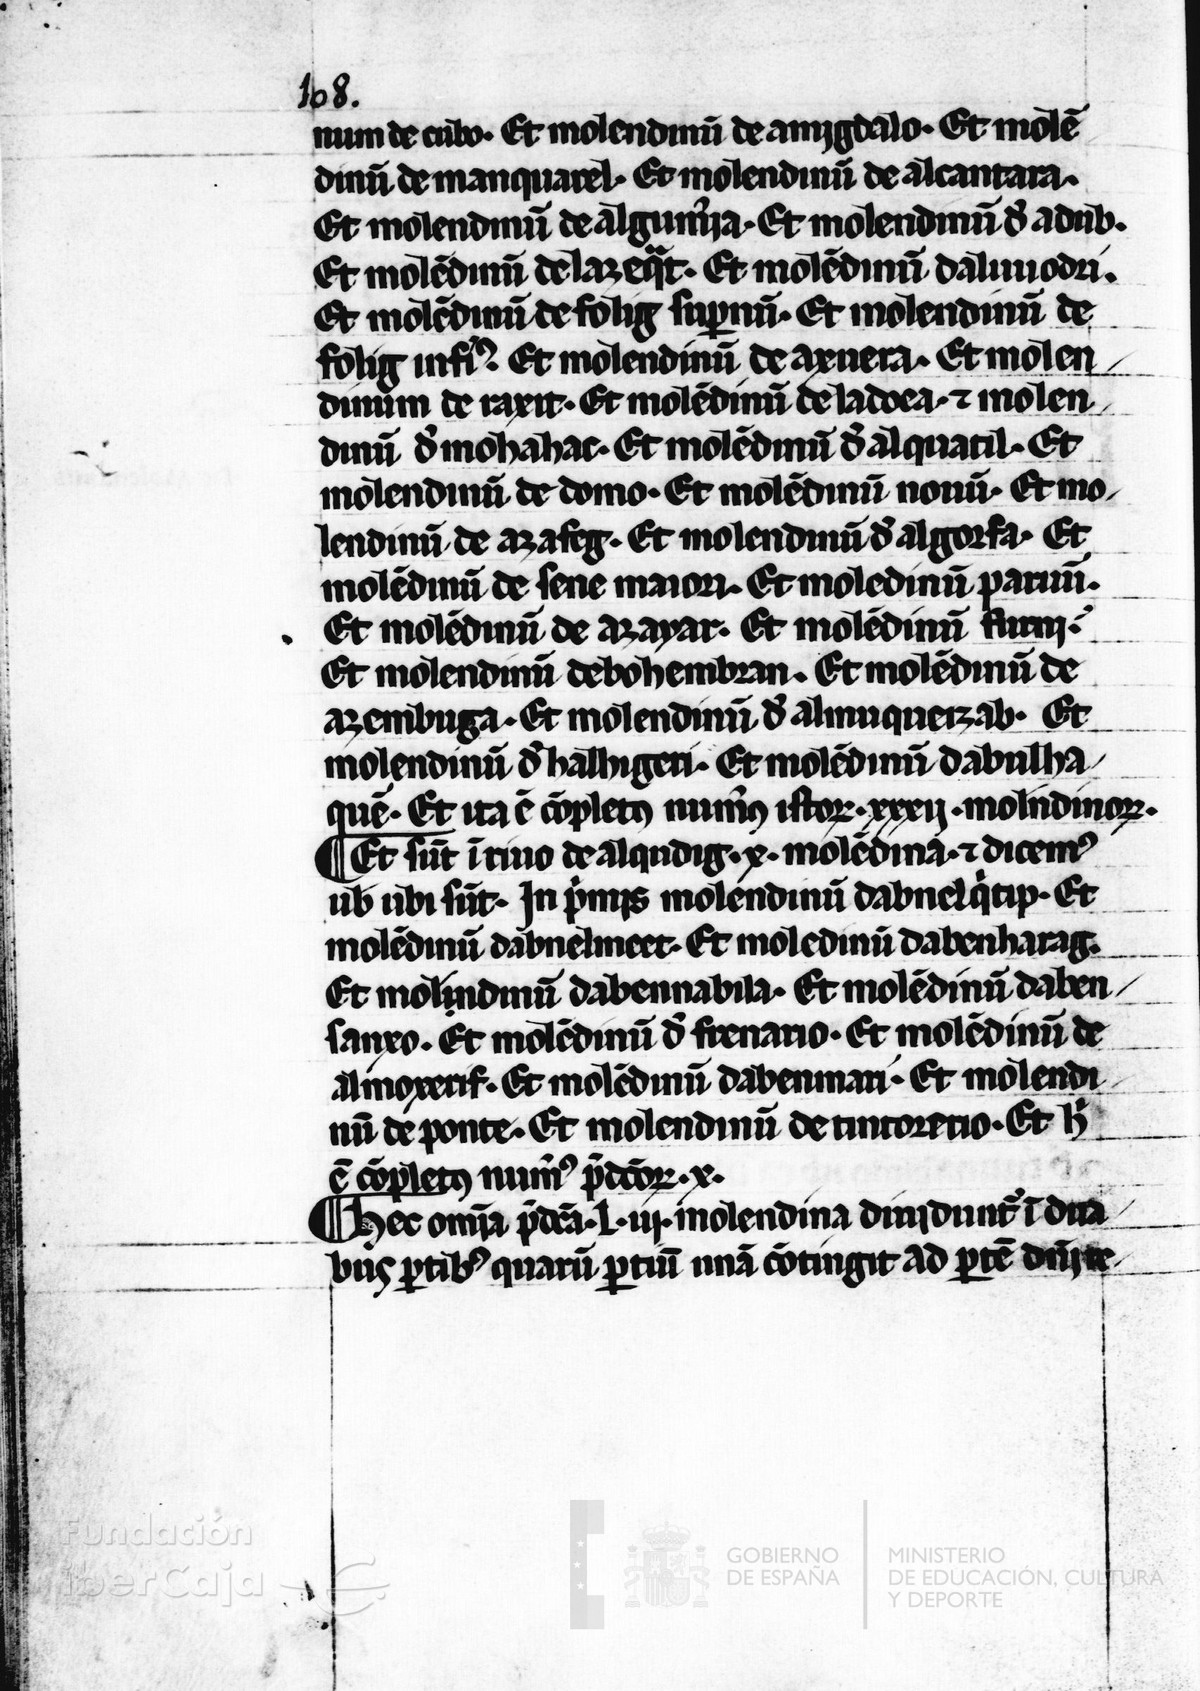 108.
num de cubo. Et molendinū de amigdalo. Et molē
dinū de manquarel. Et molendinū de alcantara.
Et molendinū de algum̄ia. Et molendinū d̓ adub.
Et molēdinū de lazeqͣt. Et molēdinū daliuuodri.
Et molēdinū de folig supnū. Et molendinū de
folig infi᷒. Et molendinū de axuera. Et molen
dinum de raxit. Et molēdinū de ladoea. ⁊ molen
dinū d̓ mohahac. Et molēdinū d̓ alquatil. Et
molendinū de domo. Et molēdinū nouū. Et mo
lendinū de azafeg. Et molendinū d̓ algorfa. Et
molēdinū de sene maiori. Et moledinū paruū.
Et molēdinū de azayar. Et molēdinū furnj.
Et molendinū debohembran. Et molēdinū de
azembuga. Et molendinū d̓ almuquerzab. Et
molendinū d̓ halhigeri. Et molēdinū dabulha
quē. Et ita ē cōpletꝰ num̓ꝰ istoꝝ. xxxij. molindinoꝝ.
¶ Et sūt ī riuo de alqudig. x. molēdina. ⁊ dicemꝰ
ub ubi sūt. In p̓mis molendinū dabnelq̓tip. Et
molēdinū dabnelmeet. Et moledinū dabenharag.
Et molindinū dabennabila. Et molēdinū daben
sanxo. Et molēdinū d̓ frenario. Et molēdinū de
almoxerif. Et molēdinū dabenmari. Et molendi
nū de ponte. Et molendinū de tintoretio. Et h̓
ē cōpletꝰ num̓ꝰ p̄dc̄oꝝ. x.
¶ Hec om̄ia p̄dc̄a. L. ij. molendina diuidunt᷑ ī dua
bus ꝑtibꝰ quarū ꝑtiū unā cōtingit ad ꝑtē dn̄j re
Fundación
iberCaja
GOBIERNO
DE ESPAÑA
MINISTERIO
DE EDUCACIÓN, CULTURA
Y DEPORTE